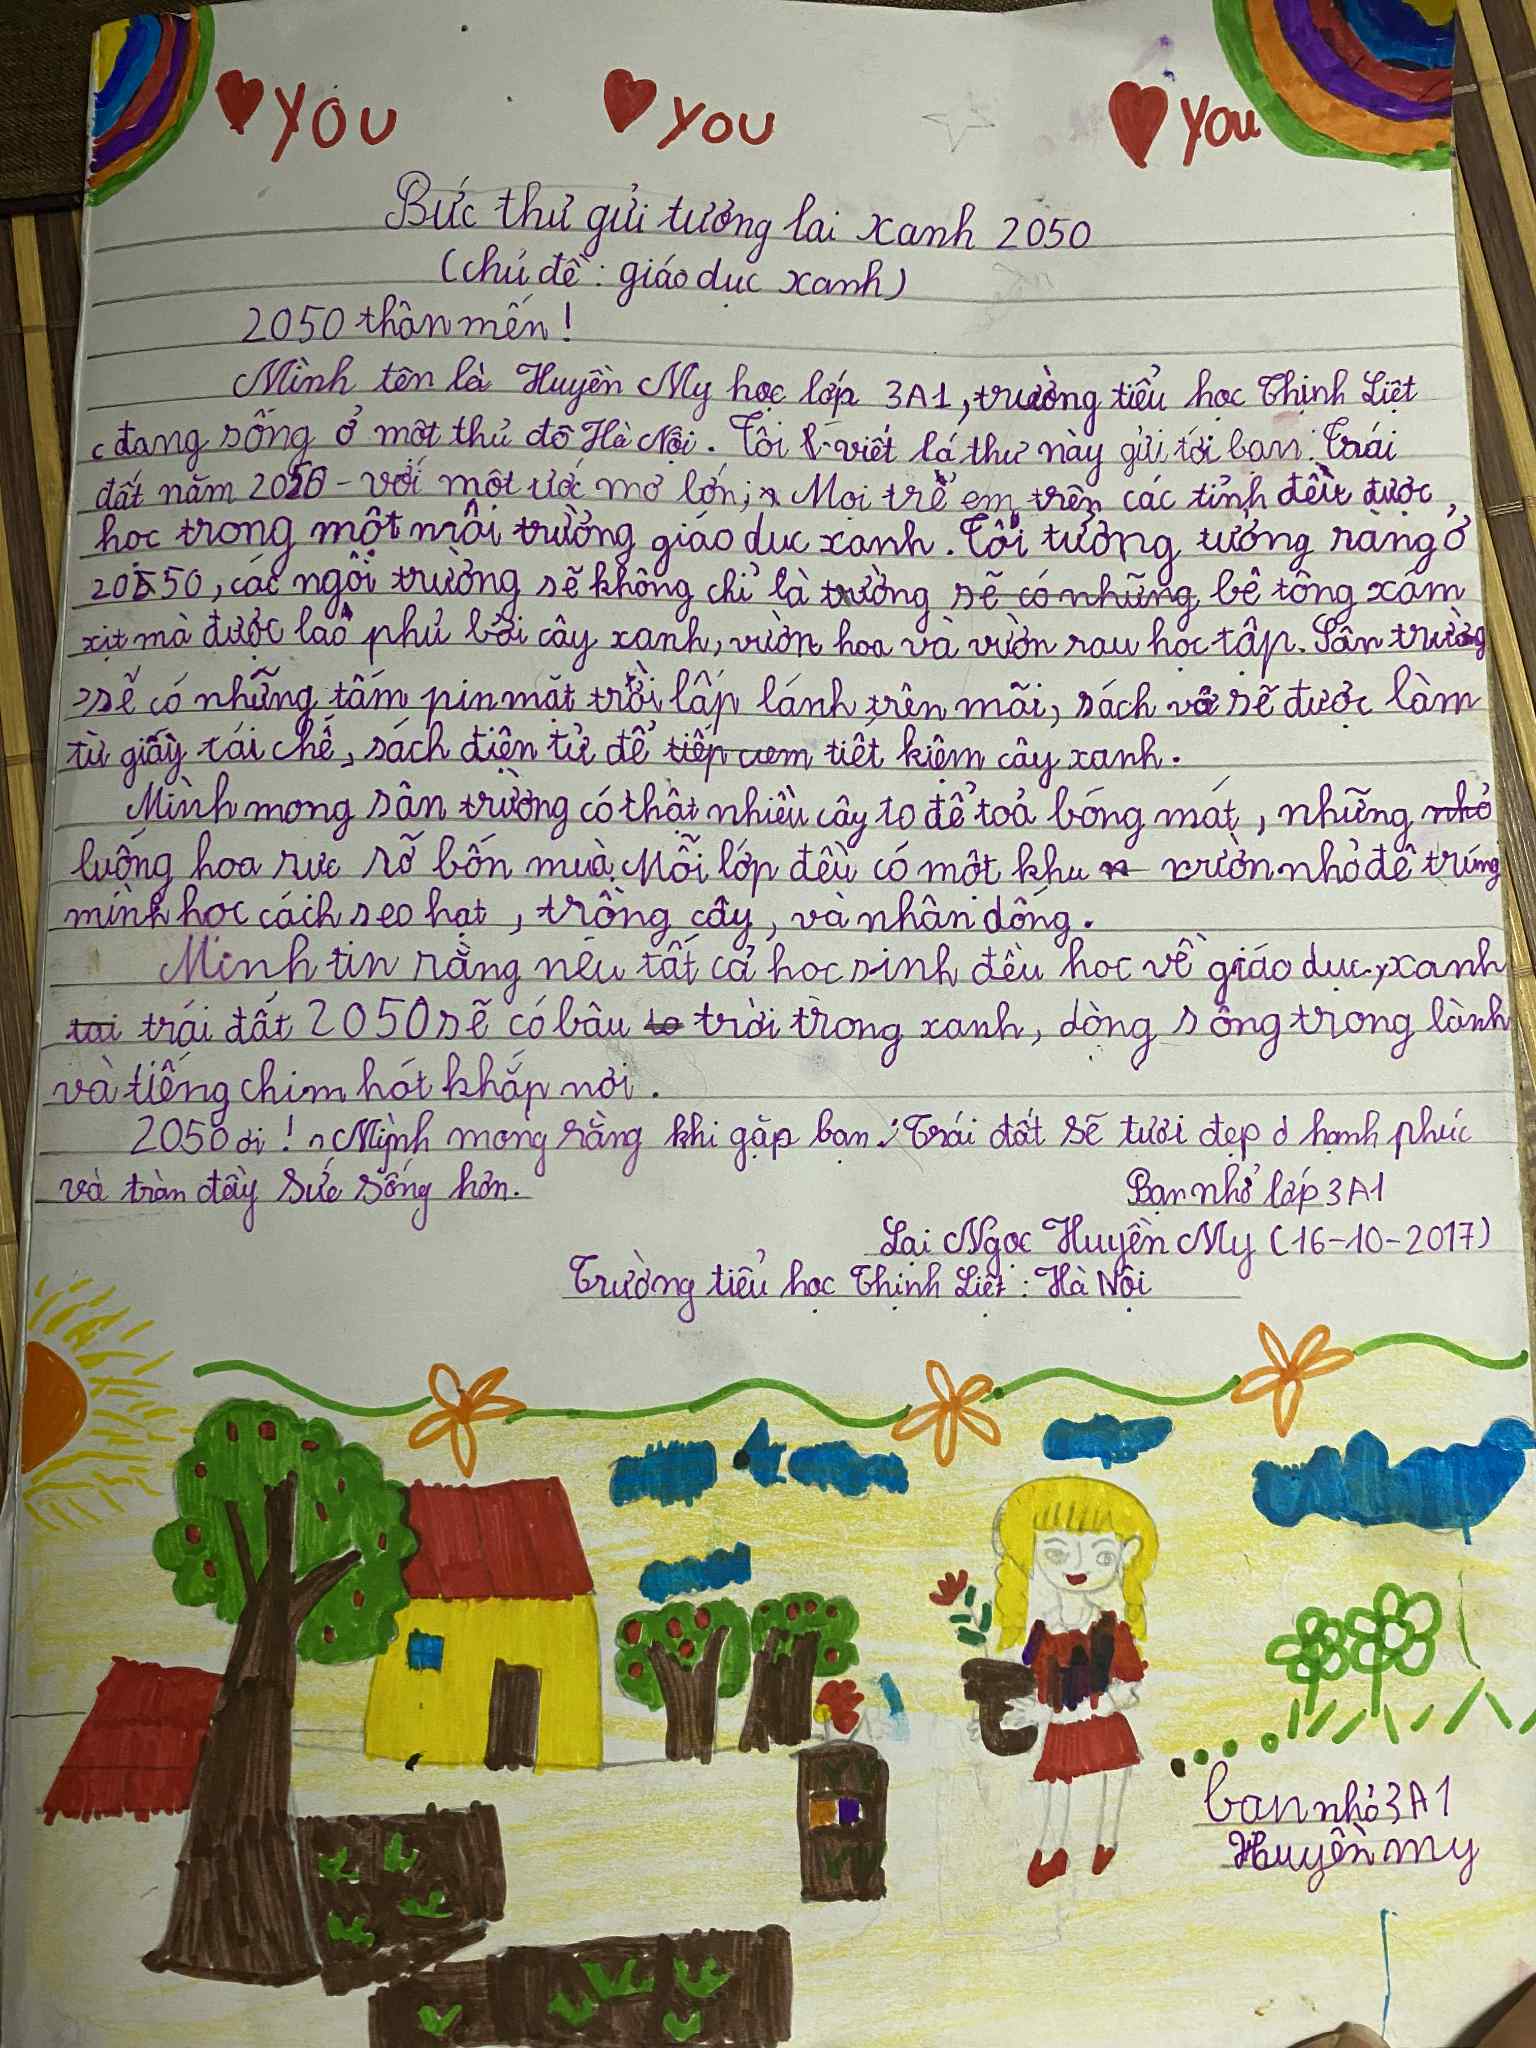 You You You
Bức thư gửi tương lai xanh 2050
(chủ đề : giáo dục xanh)
2050 thân mến !
Mình tên là Huyền My học lớp 3A1, trường tiểu học Thịnh Liệt
đang sống ở một thủ đô Hà Nội. Tôi viết lá thư này gửi tới bạn: Trái
đất năm 2050 - với một ước mơ lớn; Mọi trẻ em trên các tỉnh đều được
học trong một môi trường giáo dục xanh. Tôi tưởng tượng rằng ở
2050, các ngôi trường sẽ không chỉ là trường sẽ có những bê tông xám
xịt mà được bao phủ bởi cây xanh, vườn hoa và vườn rau học tập. Sân trường
sẽ có những tấm pin mặt trời lấp lánh trên mái, sách vở sẽ được làm
từ giấy tái chế, sách điện tử để tiết kiệm cây xanh.
Mình mong sân trường có thật nhiều cây to để toả bóng mát, những nhỏ
luống hoa rực rỡ bốn mùa. Mỗi lớp đều có một khu vườn nhỏ để trúng
mình học cách seo hạt, trồng cây, và nhân dống.
Mình tin rằng nếu tất cả học sinh đều học về giáo dục, xanh
tai trái đất 2050 sẽ có bầu trời trong xanh, dòng sông trong lành
và tiếng chim hót khắp nơi.
2050 ơi ! Mình mong rằng khi gặp bạn : Trái đất sẽ tươi đẹp hạnh phúc
và tràn đầy sức sống hơn.
Bạn nhỏ lớp 3A1
Lại Ngọc Huyền My (16-10-2017)
Trường tiểu học Thịnh Liệt : Hà Nội
bạn nhỏ 3A1
Huyền my